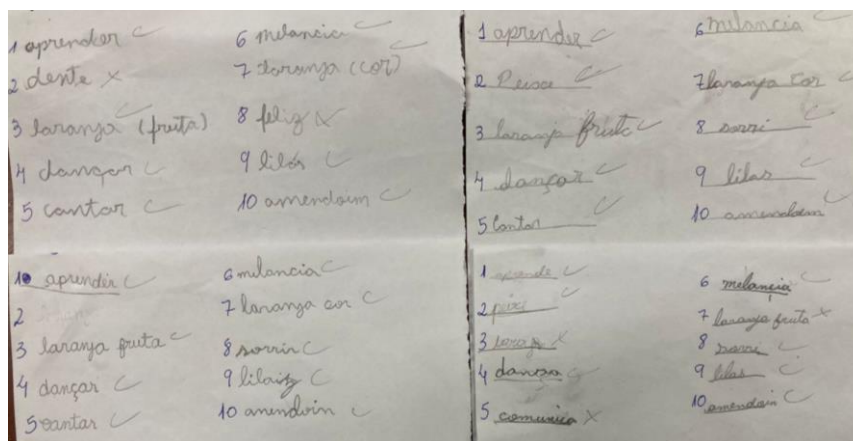 1 aprender
2 dente
3 laranja (fruta)
4 dançar
5 cantar
6 melancia
7 laranja (cor)
8 feliz
9 lilás
10 amendoim
1 aprender
2 Peixe
3 laranja fruta
4 dançar
5 Cantar
6 melancia
7 laranja cor
8 sorri
9 lilas
10 amendoim
1 aprender
2
3 laranja fruta
4 dançar
5 cantar
6 milancia
7 laranja cor
8 sorrir
9 lilaiz
10 anendoin
1 aprende
2 pixe
3
4 dansa
5 comunica
6 melancia
7 laranja fruta
8 sorri
9 lilas
10 amendoin